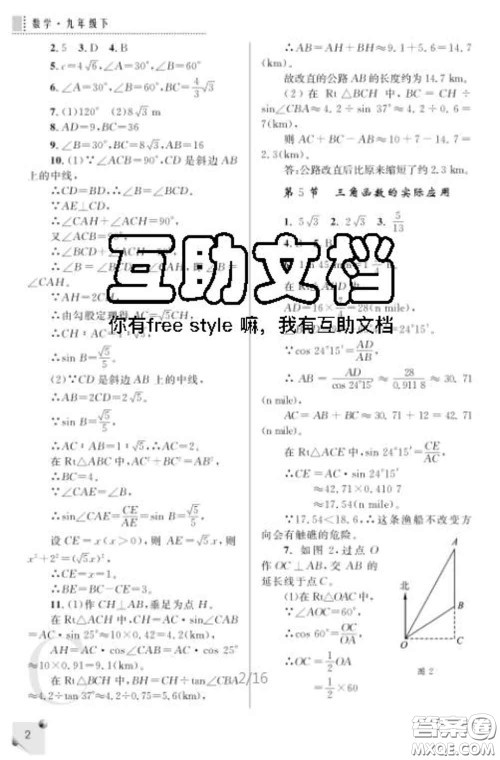 数学·九年级下
2.5 3.D 4.B
5.c=4√6,∠A=30°,∠B=60°
6.∠A=30°,∠B=60°,BC=4/3√3
7.(1)120° (2)8√3 m
8.AD=9,BC=36
9.∠B=30°,BC=8√3,AB=16
10.(1)∵∠ACB=90°,CD是斜边AB
上的中线,
∴CD=BD,∴∠B=∠BCD.
∵AE⊥CD,
∴∠CAH+∠ACH=90°,
又∠ACB=90°,
∴∠BCD+∠ACH=90°,
∴∠B=∠BCD=∠CAH.
∵AH=2CH,
∴由勾股定理得AC=√5CH,
∴CH:AC=1:√5,
∴sin B=√5/5.
(2)∵CD是斜边AB上的中线,
∴AB=2CD=2√5.
∵sin B=√5/5,
∴AC:AB=1:√5,∴AC=2.
在Rt△ABC中,AC²+BC²=AB²,
∴BC=4.
∵∠CAE=∠B,
∴sin∠CAE=CE/AE=√5/5,
设CE=x(x>0),则AE=√5x,则
x²+2²=(√5x)²,
∴CE=1.
∴BE=BC-CE=3.
11.(1)作CH⊥AB,垂足为点H.
在Rt△CAH中,CH=AC·sin∠CAB
=AC·sin 25°≈10×0.42=4.2(km),
AH=AC·cos∠CAB=AC·cos25°
≈10×0.91=9.1(km).
在Rt△CBH中,BH=CH÷tan∠CBA
≈4.2÷tan 37°≈4.2÷0.75=5.6(km),
∴AB=AH+BH≈9.1+5.6=14.7
(km).
故改直的公路AB的长度约为14.7 km.
(2)在Rt△BCH中,BC=CH÷
sin∠CBA≈4.2÷sin 37°≈4.2÷0.6=
7(km),
则AC+BC-AB≈10+7-14.7=
2.3(km).
答:公路改直后比原来缩短了约2.3 km.
第5节 三角函数的实际应用
1.5√3 2.2√3 3.5/13
互助文档
你有free style 嘛，我有互助文档
∵cos 24°15′=AD/AB,
∴AB=AD/cos 24°15′≈28/0.911 8≈30.71
(n mile).
AC=AB+BC≈30.71+12=42.71
(n mile).
在Rt△ACE中,sin 24°15′=CE/AC,
∴CE=AC·sin 24°15′
≈42.71×0.410 7
≈17.54(n mile).
∵17.54<18.6,∴这条渔船不改变方
向会有触礁的危险.
7.如图2,过点
O作OC⊥AB,交AB的
延长线于点C.
(1)在Rt△OAC中,
∵∠AOC=60°,
∴cos 60°=OC/OA,
∴OC=1/2OA
=1/2×60
北
A
B
O
C
图2
2/16
2
答案圈
MXQE.COM